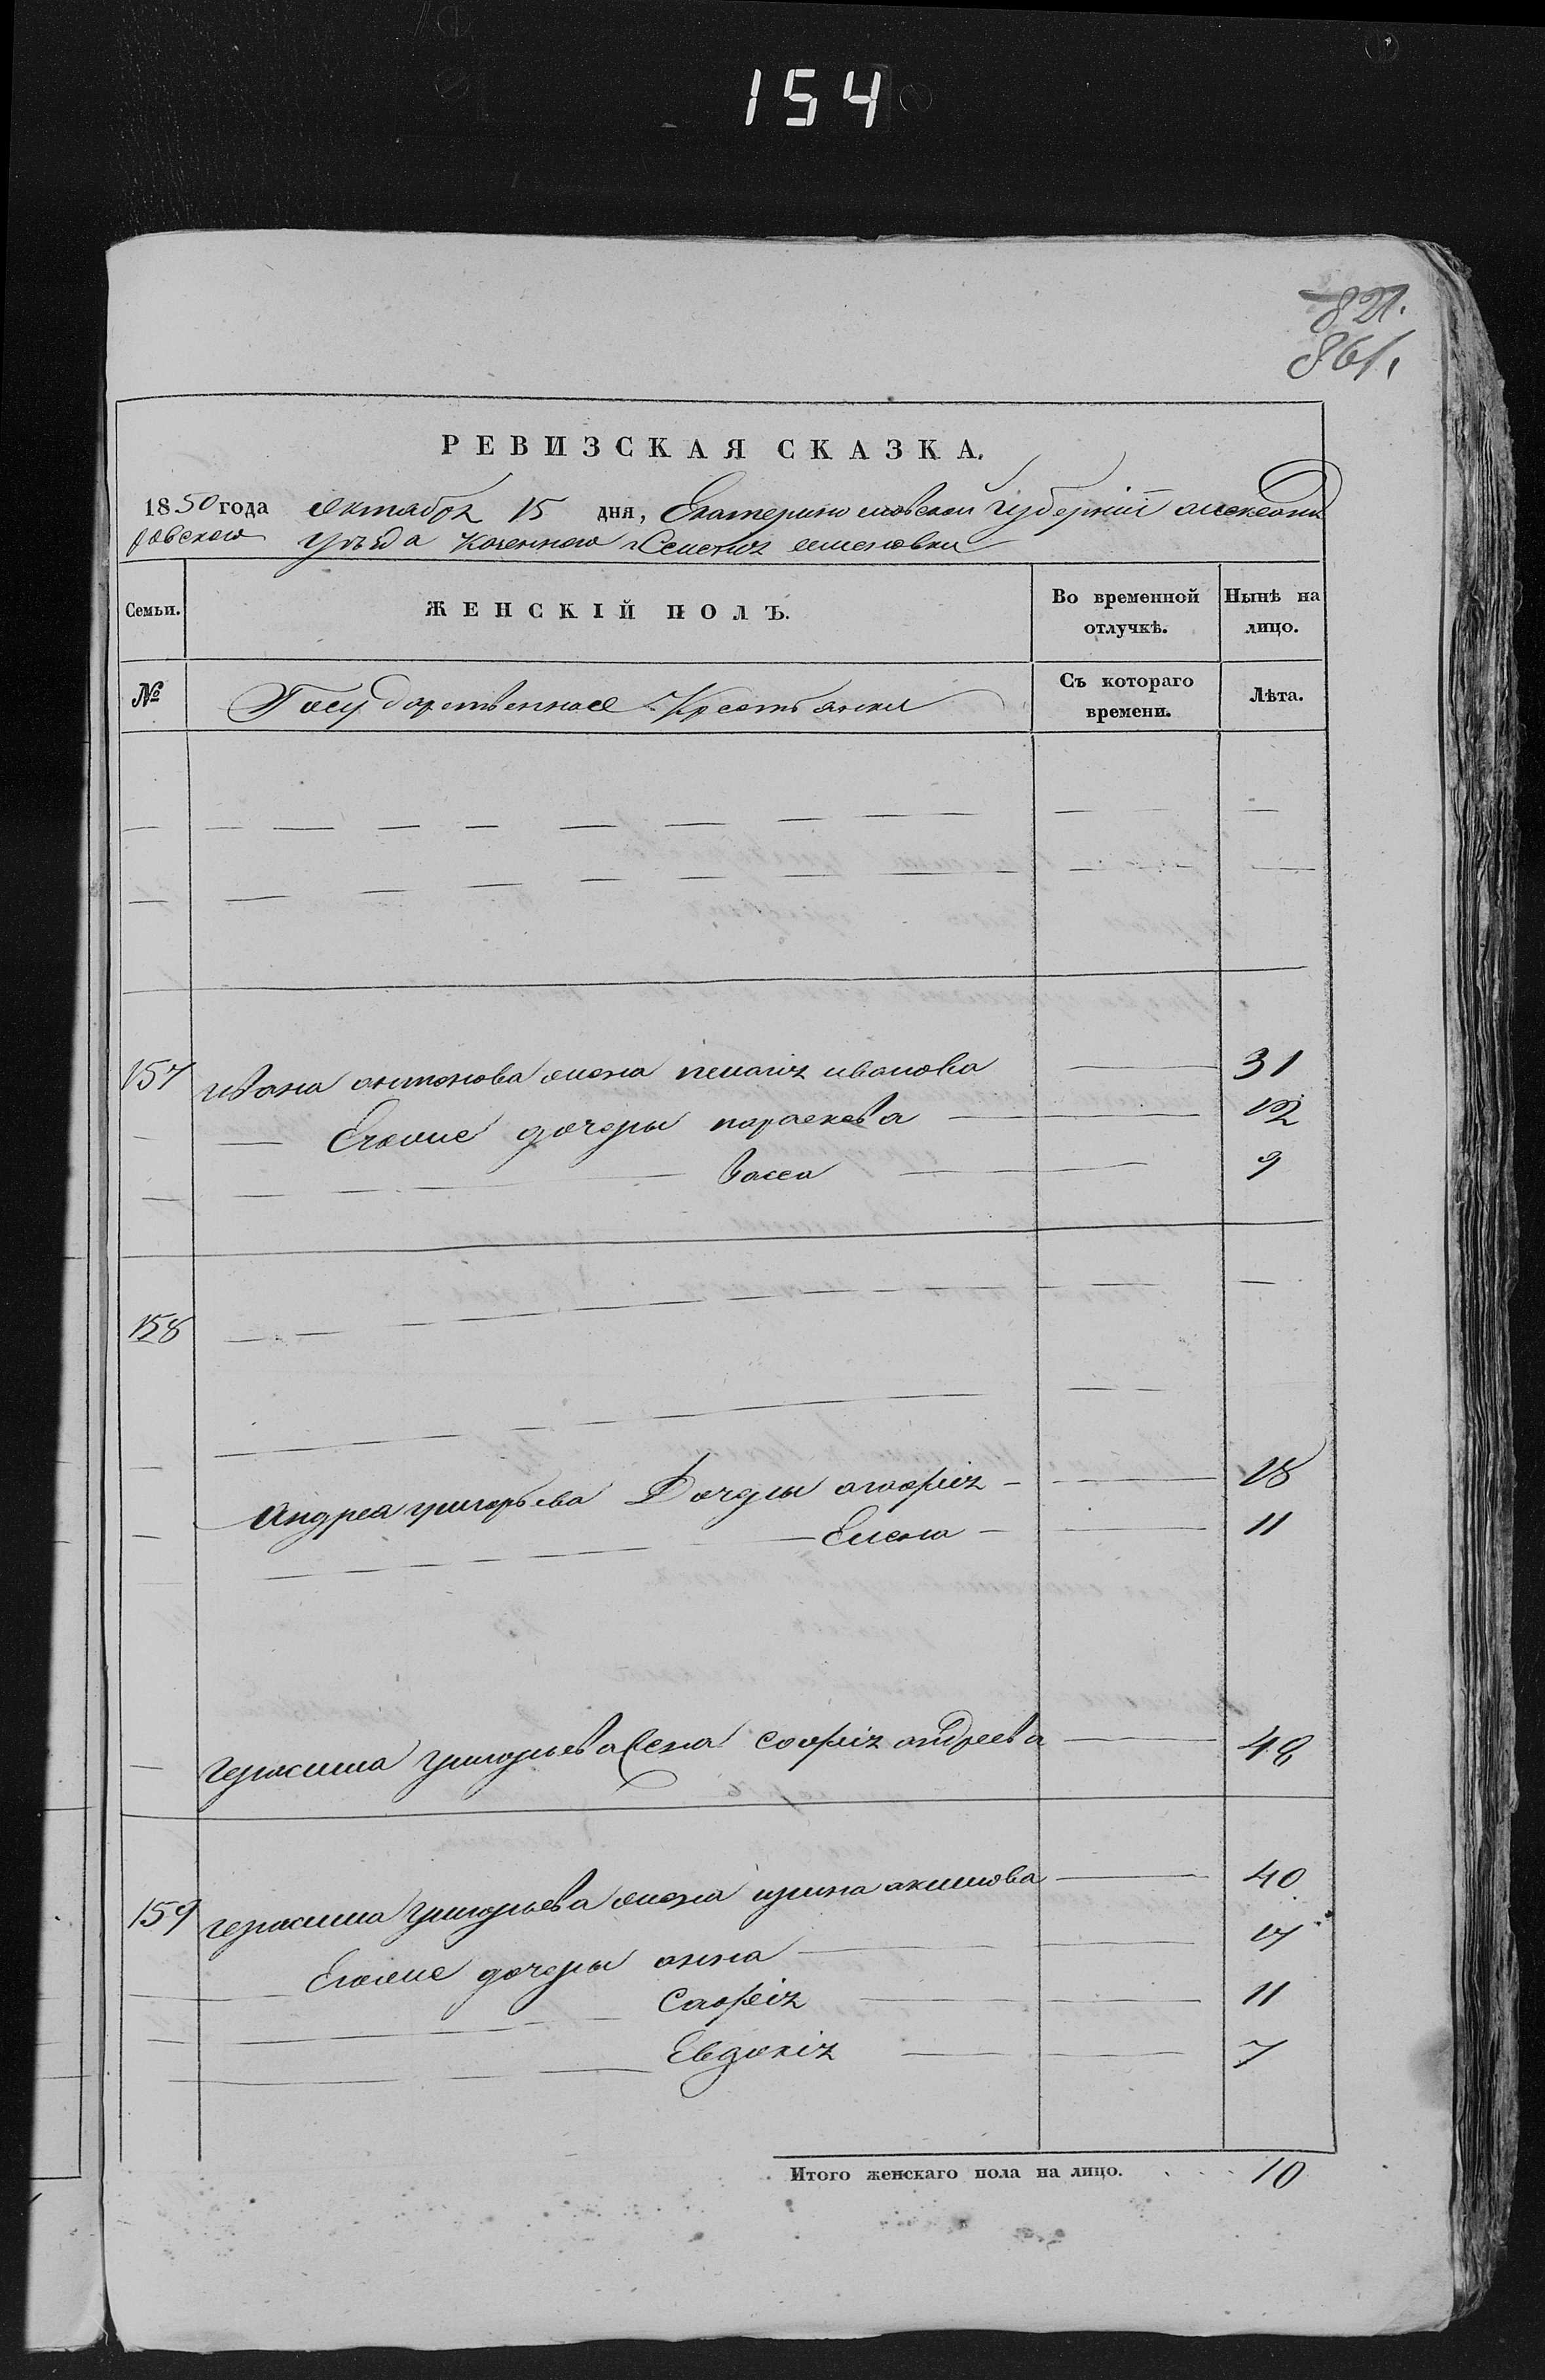 154
821.
861.
РЕВИЗСКАЯ СКАЗКА.
1850 года октября 15 дня, Екатеринославской губернии александ
ровского уезда казенного Селения семеновки
Семьи. ЖЕНСКІЙ ПОЛЪ. Во временной отлучкѣ. Нынѣ на лицо.
№ Государственнае Крестьянки Съ котораго времени. Лѣта.
157 ивана антонова жена пелагия иванова 31
Еговые дочеры параскева 12
Васса 9
158
Андрея григорьева Дочеры агафия 18
Елена 11
герасима григорьева жена софия андреева 48
159 герасима григорьева жена ирина акимова 40
Еговые дочеры анна 17
София 11
Евдокия 7
Итого женскаго пола на лицо. 10